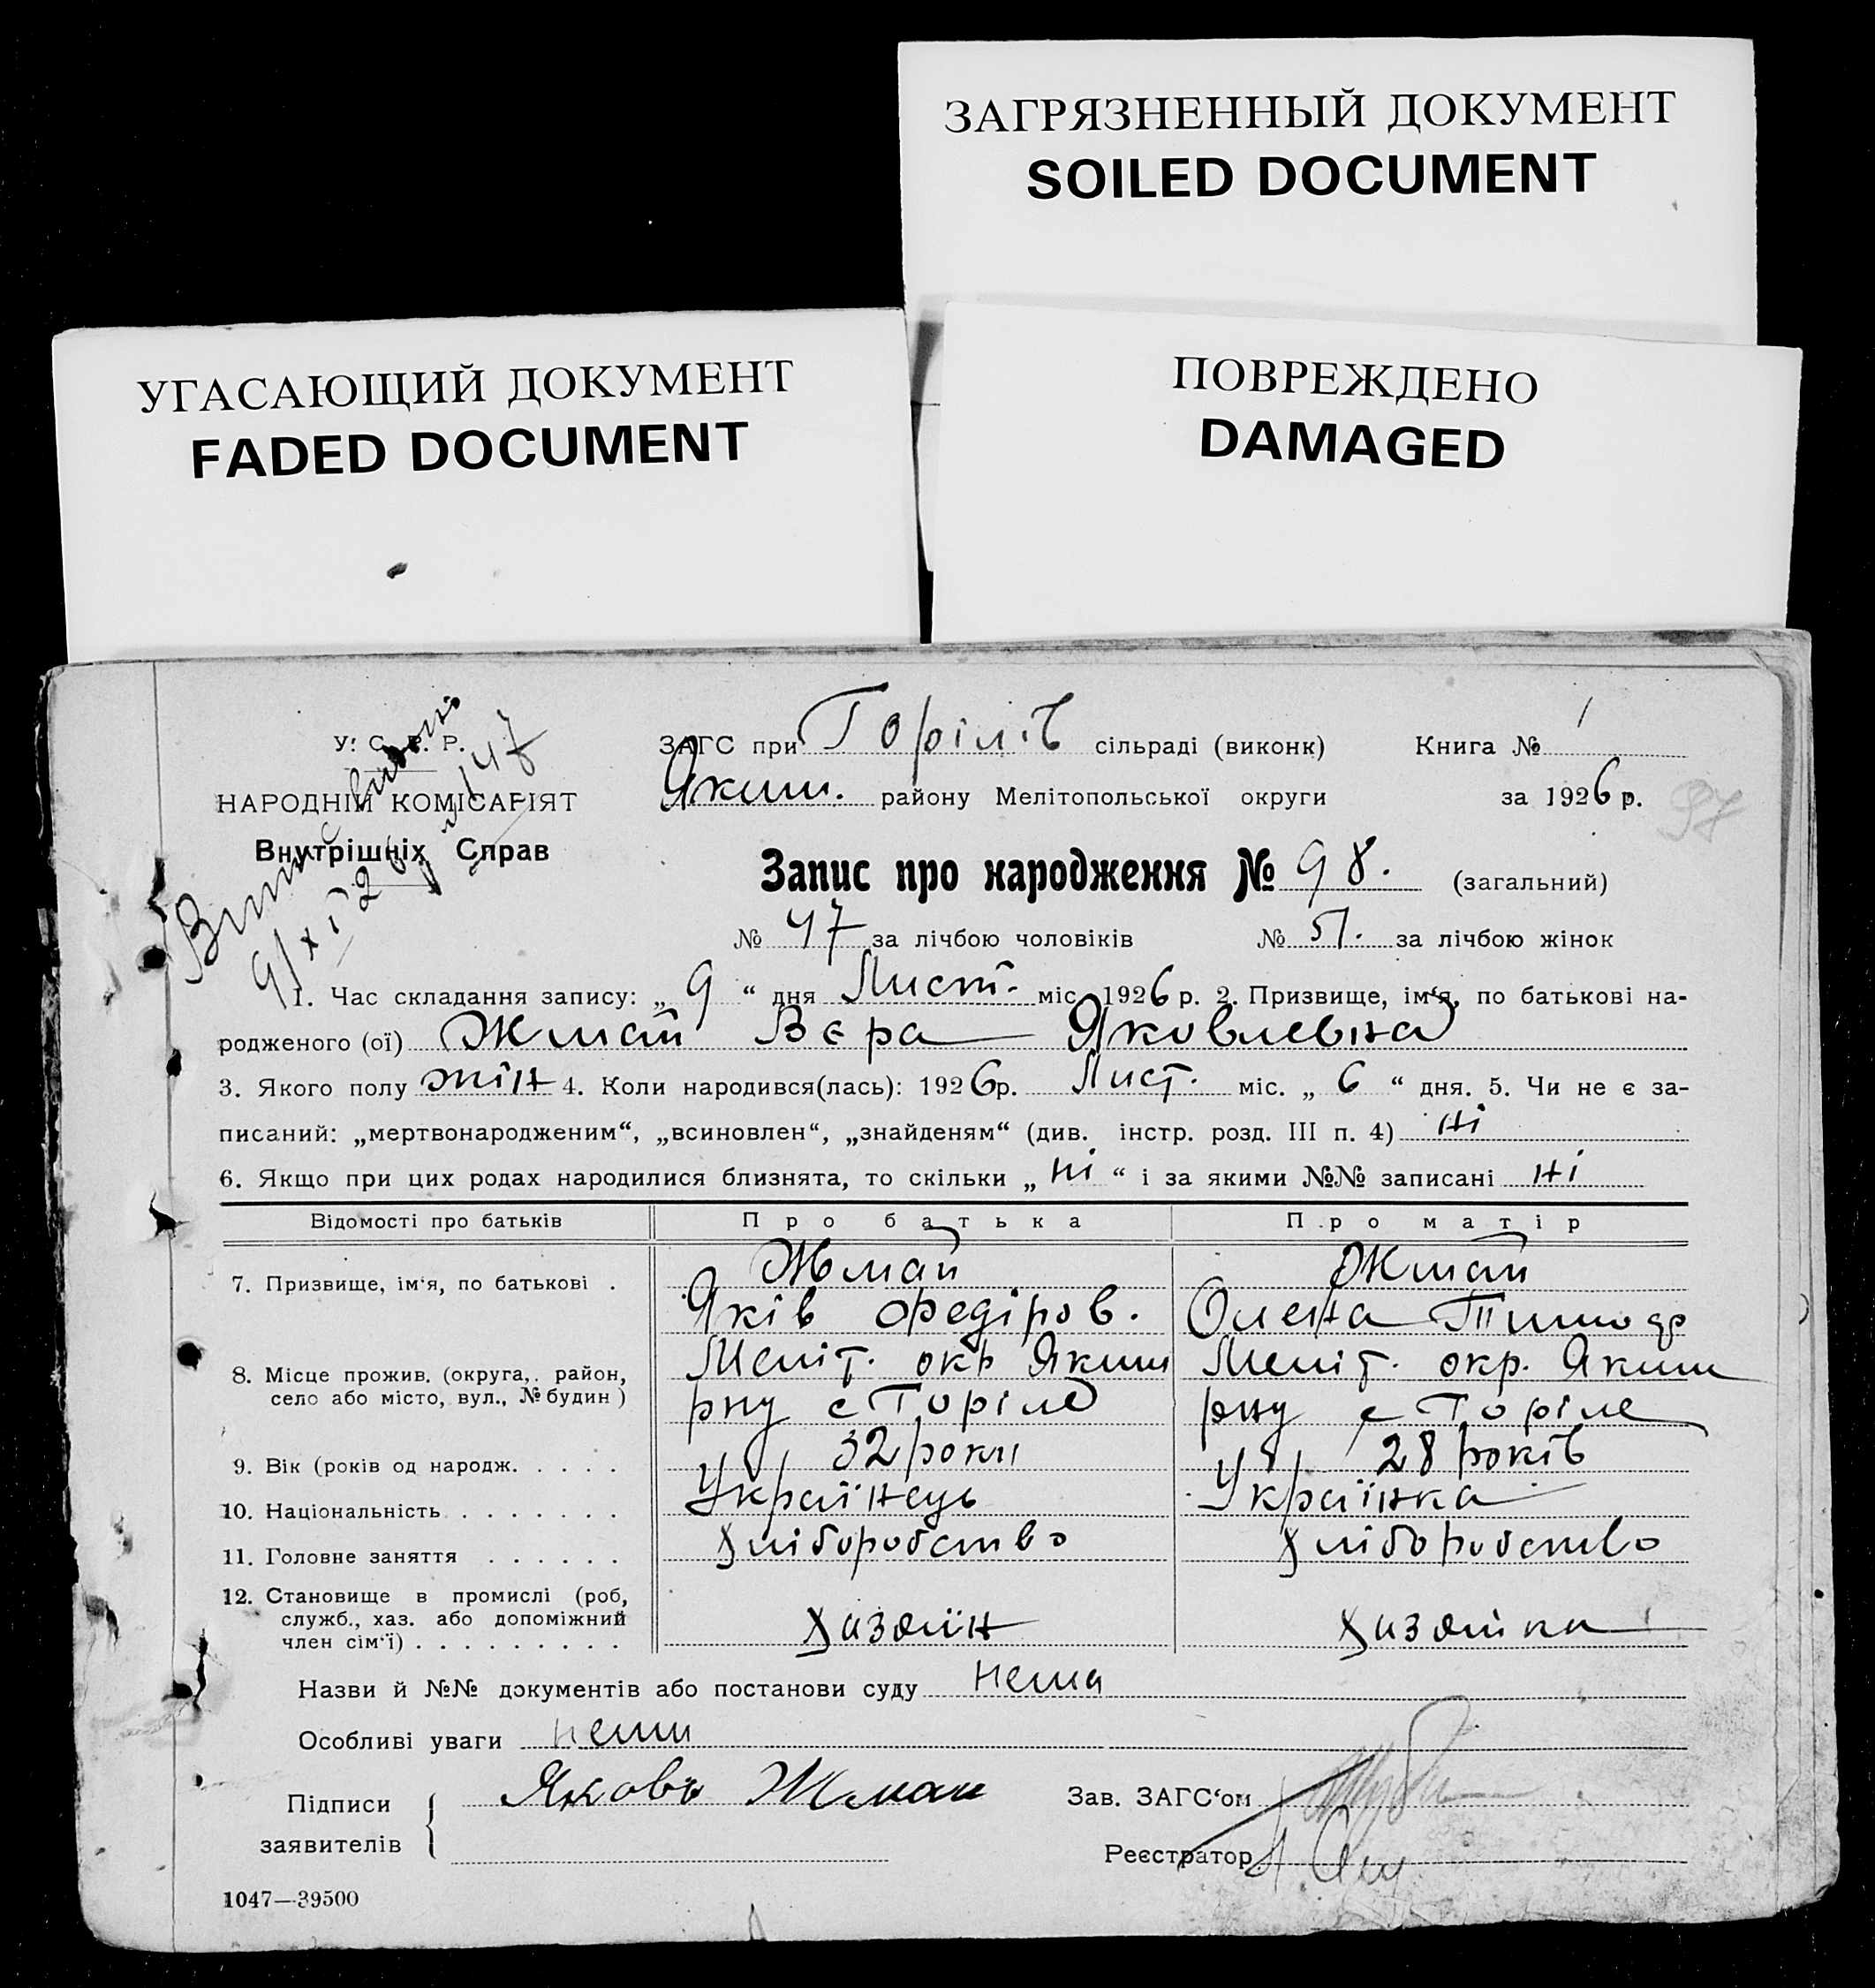 ЗАГРЯЗНЕННЫЙ ДОКУМЕНТ
SOILED DOCUMENT
УГАСАЮЩИЙ ДОКУМЕНТ
FADED DOCUMENT
ПОВРЕЖДЕНО
DAMAGED
У. С. Р. Р.
НАРОДНІЙ КОМІСАРІЯТ
Внутрішніх Справ
147
ЗАГС при Горілів сільраді (виконк) Книга № 1
Яким. району Мелітопольської округи за 1926 р.
97
Запис про народження № 98. (загальний)
№ 47 за лічбою чоловіків № 51. за лічбою жінок
1. Час складання запису: „ 9 “ дня Лист. міс. 1926 р. 2. Призвище, ім‘я, по батькові на-
родженого (ої) Жмай Вєра Яковлевна
3. Якого полу жін 4. Коли народився(лась): 1926р. Лист. міс. „ 6 “ дня. 5. Чи не є за-
писаний: „мертвонародженим“, „всиновлен“, „знайденям“ (див. інстр. розд. III п. 4) ні
6. Якщо при цих родах народилися близнята, то скільки „ ні “ і за якими №№ записані ні
Відомості про батьків Про батька Про матір
7. Призвище, ім‘я, по батькові . Жмай Жмай
Яків Федіров. Олена
8. Місце прожив. (округа, район, Меліт. окр Яким Меліт. окр. Яким
село або місто, вул., № будин ) рну с Горіле рну с Горіле
9. Вік (років од народж. . . . . 32 роки 28 років
10. Національність . . . . . . . Українець Українка
11. Головне заняття . . . . . . Хліборобство Хліборобство
12. Становище в промислі (роб,
служб., хаз. або допоміжний
член сім‘ї) . . . . . . . . . Хазяїн Хазяйка
Назви й №№ документів або постанови суду нема
Особливі уваги нема
Підписи Яковъ Жмай Зав. ЗАГС‘ом
заявителів Реєстратор
1047—39500